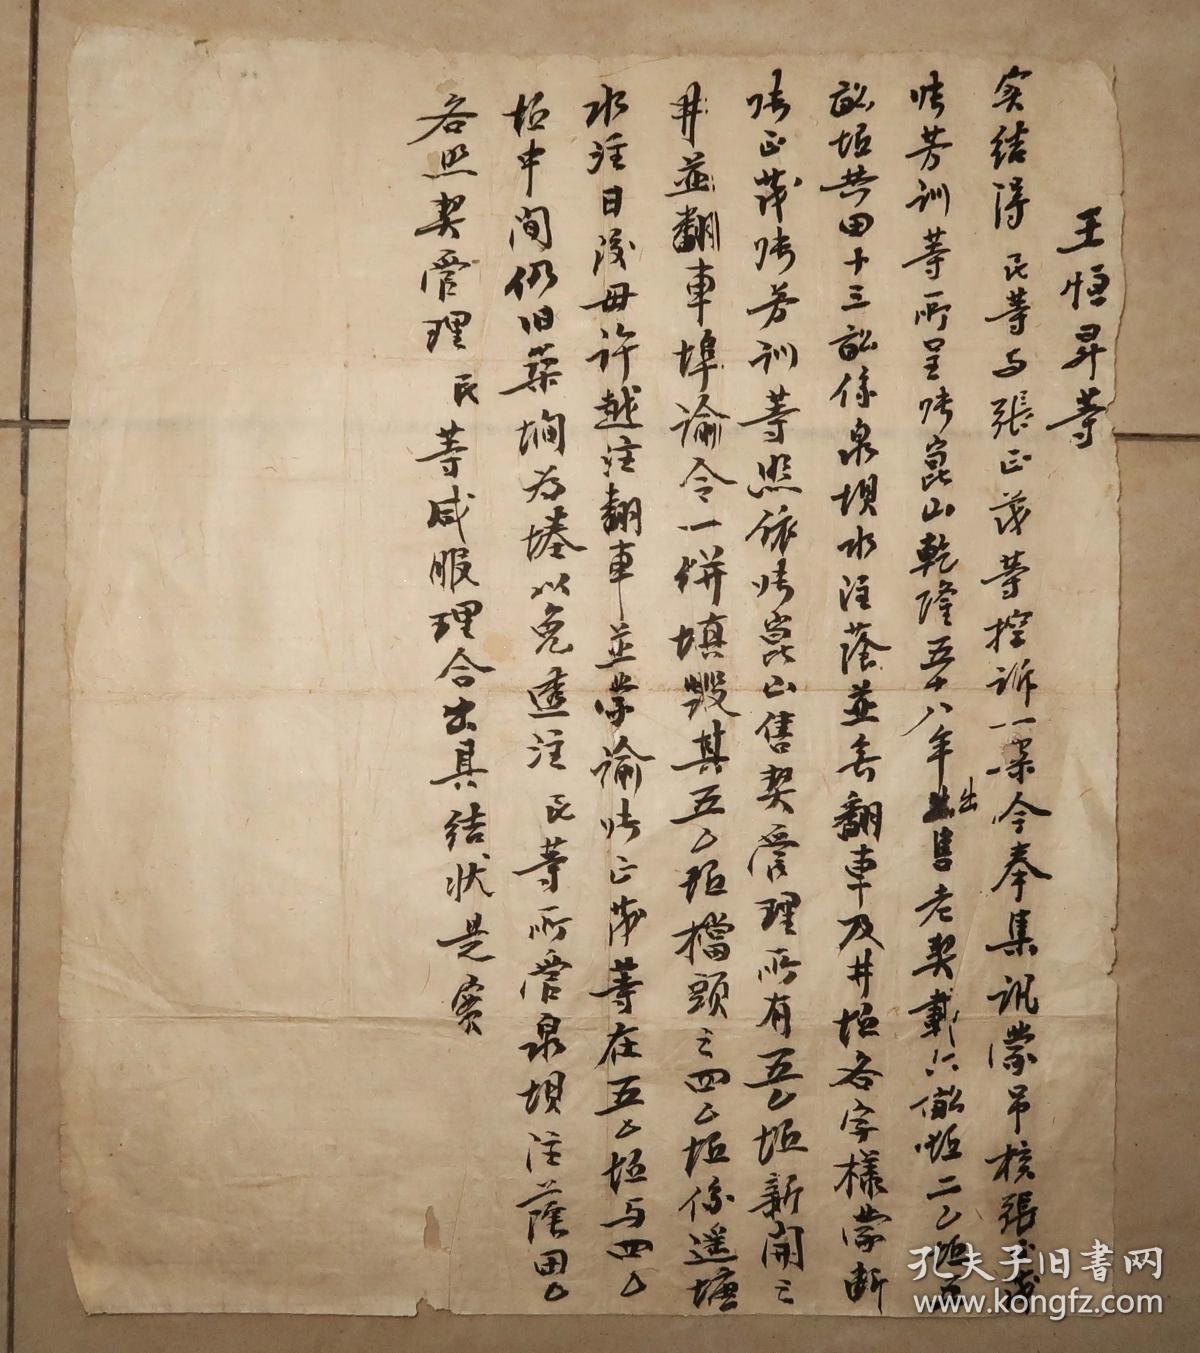 王恒昇等
实结得民等与張正茂等控訴一案今奉集訊蒙吊核張正茂
张芳訓等所呈张崑山乾隆五十八年出售老契載六畝坵二乙坵五
畝坵共田十三畝係泉坝水注蔭並無翻車及井坵各字樣蒙断
张正茂张芳训等照依张崑山售契管理所有五乙坵新開之
井並翻車埠諭令一併填毀其五乙坵檔頭之四乙坵係遥塘
水注日後毋許越注翻車並蒙諭张正茂等在五乙坵与四乙
坵中间仍旧築塅為塝以免透注民等所管泉坝注蔭田乙
各照契管理民等咸服理合出具结状是實
孔夫子旧書网
www.kongfz.com